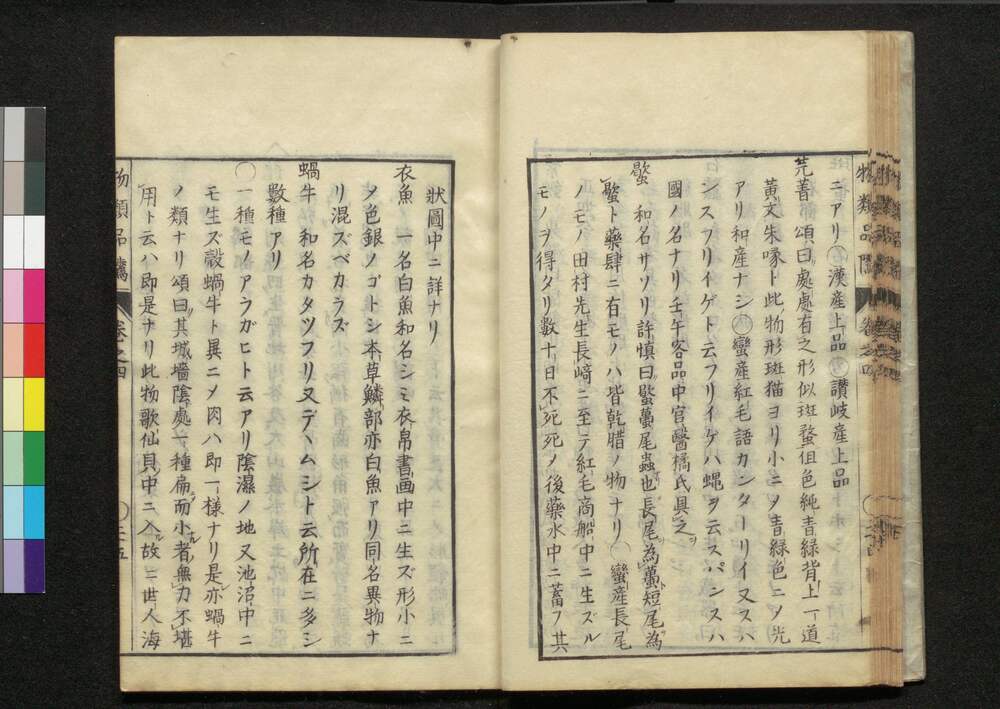 物類品隲 卷之四
ニアリ○漢産上品○讃岐産上品
芫菁 頌曰處處有之形似斑蝥但色純青緑背上一道
黄文朱喙ト此物形斑猫ヨリ小ニメ青緑色ニメ光
アリ和産ナシ○蠻産紅毛語カンターリイ又スハ
ンスフリイゲト云フリイゲハ蝿ヲ云スパンスハ
國ノ名ナリ壬午客品中官醫橘氏具之
蠍 和名サソリ許慎曰蠍蠆尾蟲也長尾為蠆短尾為
蠍ト藥肆ニ有モノハ皆乾腊ノ物ナリ○蠻産長尾
ノモノ田村先生長﨑ニ至テ紅毛商船中ニ生ズル
モノヲ得タリ數十日不死死ノ後藥水中ニ蓄フ其
狀圖中ニ詳ナリ
衣魚 一名白魚和名シミ衣帛書画中ニ生ズ形小ニ
メ色銀ノゴトシ本草鱗部亦白魚アリ同名異物ナ
リ混ズベカラズ
蝸牛 和名カタツフリ又デヽムシト云所在ニ多シ
數種アリ
○一種モノアラガヒト云アリ陰濕ノ地又池沼中ニ
モ生ズ殻蝸牛ト異ニメ肉ハ即一様ナリ是亦蝸牛
ノ類ナリ頌曰其城墻陰處一種扁而小者無力不堪
用ト云ハ即是ナリ此物歌仙貝中ニ入故ニ世人海
物類品隲 卷之四 ○二十五